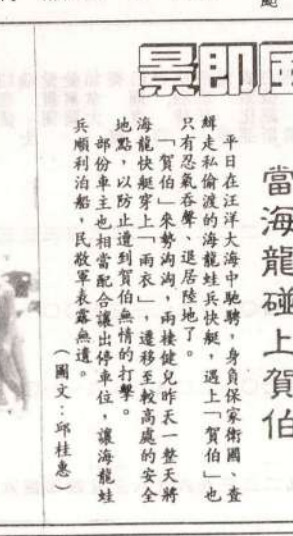 風即景
當海龍碰上賀伯
平日在汪洋大海中馳騁，身負保家衛國、查
緝走私偷渡的海龍蛙兵快艇，遇上「賀伯」也
只有忍氣吞聲、退居陸地了。
「賀伯」來勢洶洶，兩棲健兒昨天一整天將
海龍快艇穿上「雨衣」，遷移至較高處的安全
地點，以防止遭到賀伯無情的打擊。
部份車主也相當配合讓出停車位，讓海龍蛙
兵順利泊船，民敬軍表露無遺。
（圖文：邱桂惠）